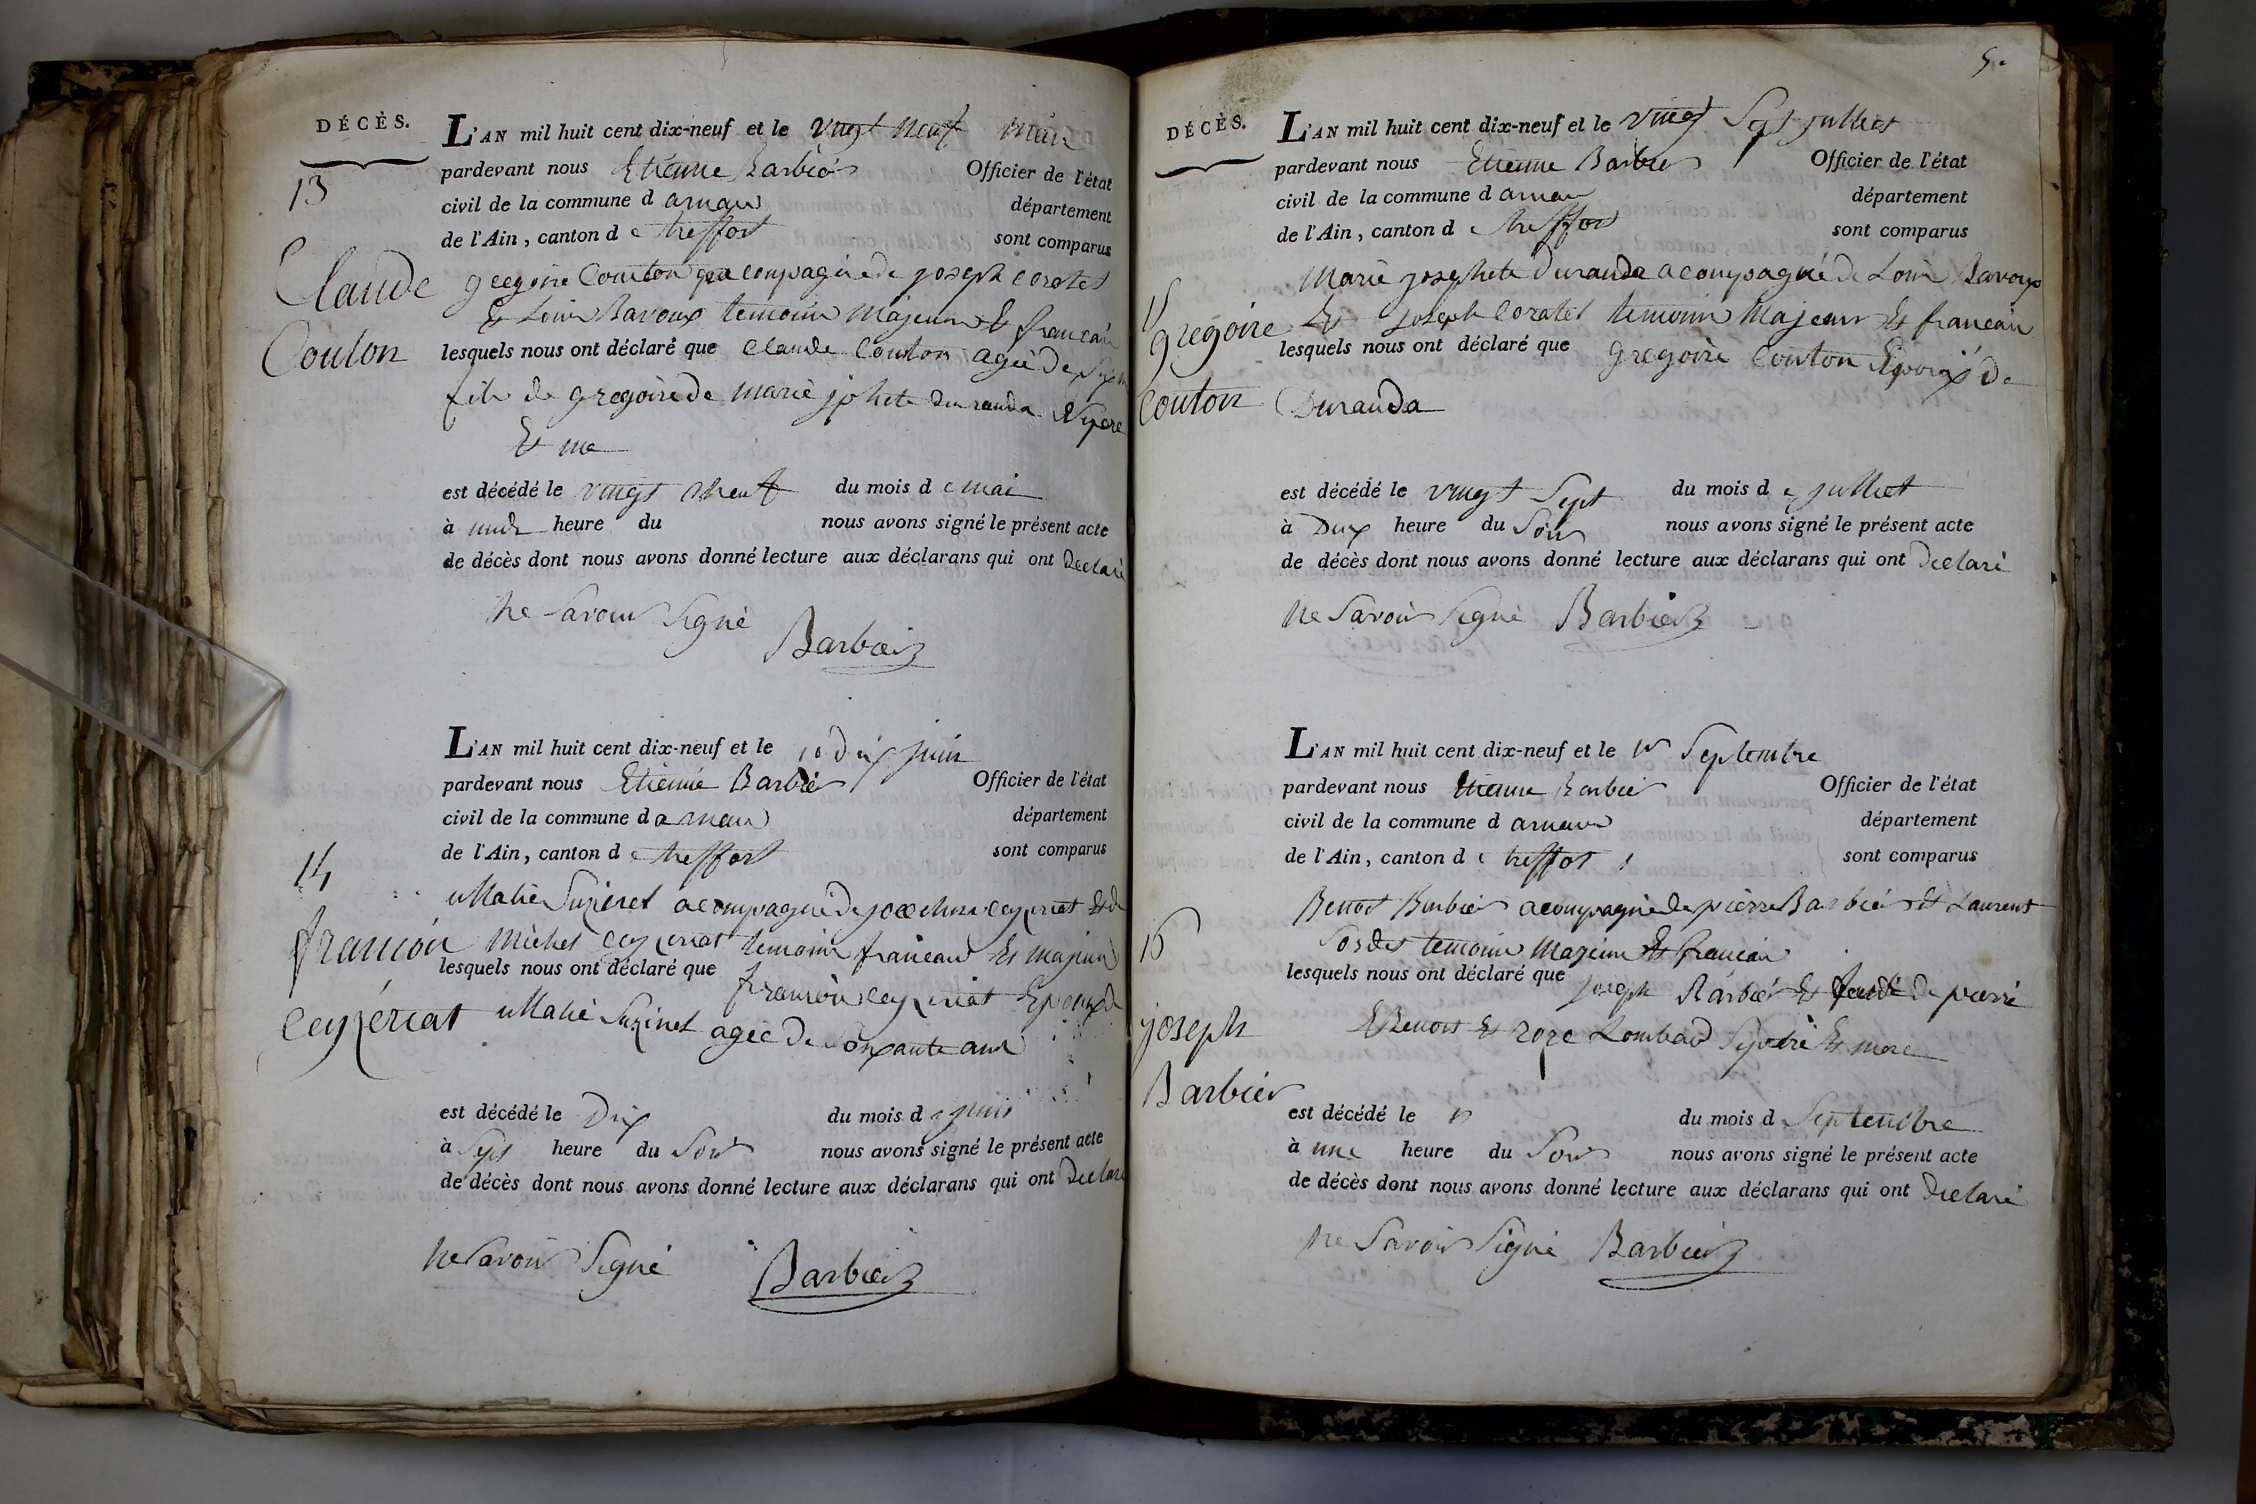 DÉCÈS.
13
Claude
Couton
L'AN mil huit cent dix-neuf et le vingt neuf mai
pardevant nous Etienne Barbier Officier de l'état
civil de la commune d arnau département
de l'Ain, canton d e treffort sont comparus
gregoire Couton acompagné de joseph coratet
Et Louis Bavoux temoin Majeur Et francais
lesquels nous ont déclaré que Claude Couton agée de
fils de gregoire de marie jphete duranda
Et me
est décédé le vingt neuf du mois d e mai
à midi heure du nous avons signé le présent acte
de décès dont nous avons donné lecture aux déclarans qui ont declaré
ne Savoir Signé
Barbier
14
francois
Ceyzeriat
L'AN mil huit cent dix-neuf et le 10 dix juin
pardevant nous Etienne Barbier Officier de l'état
civil de la commune d arnau département
de l'Ain, canton d e treffort sont comparus
Marie Suzinet acompagné de ceyzeriat Et de
Michel ceyzeriat temoin francais Et majeur
lesquels nous ont déclaré que francois ceyzeriat Epoux de
Marie Suzinet agée de Soixante ans
est décédé le Dix du mois d e juin
à Sept heure du Soir nous avons signé le présent acte
de décès dont nous avons donné lecture aux déclarans qui ont declaré
ne Savoir Signé
Barbier
5.
DÉCÈS.
15
gregoire
Couton
L'AN mil huit cent dix-neuf et le vingt Sept julliet
pardevant nous Etienne Barbier Officier de l'état
civil de la commune d arnau département
de l'Ain, canton d e treffort sont comparus
Marie josephete duranda acompagné de Louis Bavoux
Et joseph coratet temoin Majeur Et francais
lesquels nous ont déclaré que gregoire Couton Epoux de
Duranda
est décédé le vingt Sept du mois d e julliet
à Dux heure du Soir nous avons signé le présent acte
de décès dont nous avons donné lecture aux déclarans qui ont declaré
ne Savoir Signé Barbier
16
joseph
Barbier
L'AN mil huit cent dix-neuf et le Septembre
pardevant nous Etienne Barbier Officier de l'état
civil de la commune d arnau département
de l'Ain, canton d e treffort sont comparus
Benoit Barbier acompagné de pierre Barbier et Laurent
temoin Majeur Et francais
lesquels nous ont déclaré que joseph Barbier de pierre
Benoit Et roze Lombad Et mere
est décédé le du mois d Septembre
à une heure du Soir nous avons signé le présent acte
de décès dont nous avons donné lecture aux déclarans qui ont declaré
ne Savoir Signé Barbier